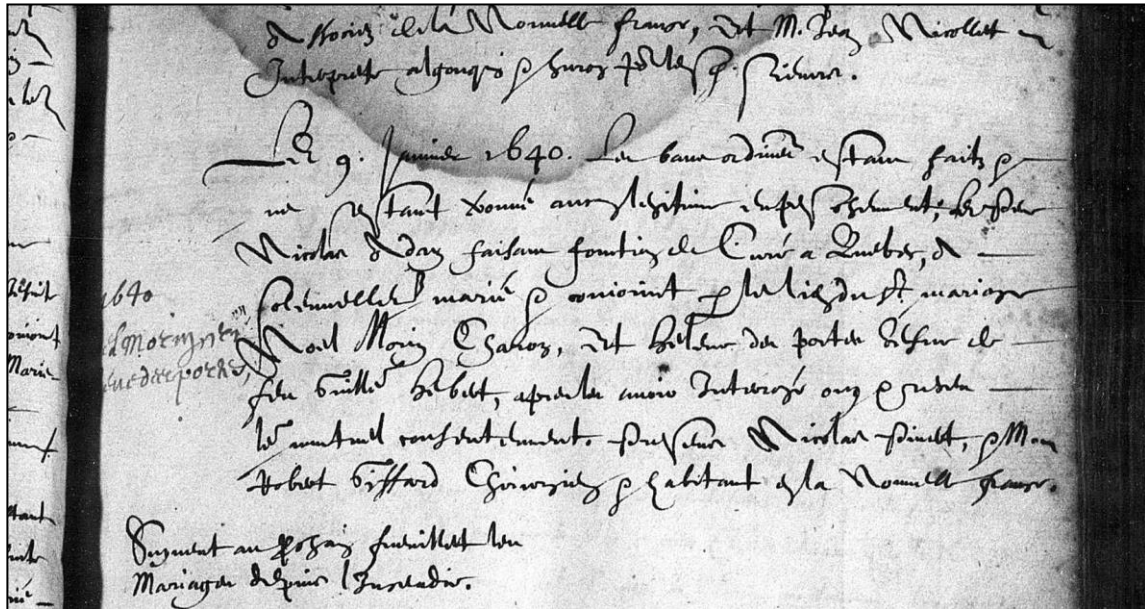 de la Nouvelle france, et M. Jean Nicollet
Interprete algonquin & huron
Le 9. Janvier 1640. Les bans ordinaires estans faits &
ne s'estant trouvé aucun legitime empeschement, le Pere
Nicolas Adam faisant fonction de Curé a Quebec, a
solennellement marié & conioint par le lien du st. mariage
Noel Morin Charon, et Helene des portes vefve de
feu Guille Hebert, apres les avoir Interrogé ouy & receu
leur mutuel consentement. presence Nicolas Pivert, & Mon
Robert Giffard Chirurgien & habitant en la Nouvelle france.
1640
Morin
desportes,
Suyvent au prochain fueillet les
Mariages depuis l'Incendie.